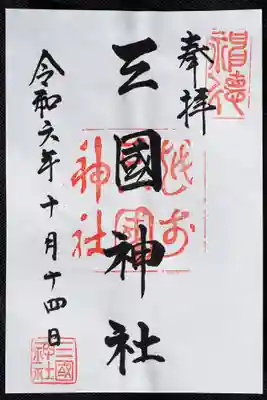 奉拝
三國神社
令和六年十月十四日
越前
三國
神社
三國
神社